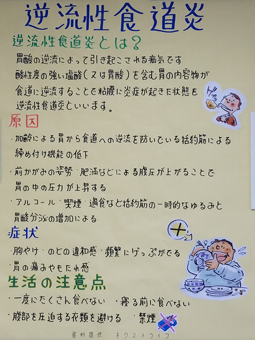 逆流性食道炎
逆流性食道炎とは?
胃酸の逆流によって引き起こされる病気です
酸性度の強い塩酸(又は胃酸)を含む胃の内容物が
食道に逆流することで粘膜に炎症が起きた状態を
逆流性食道炎といいます。
原因
・加齢による胃から食道への逆流を防いでいる括約筋による
締め付け機能の低下
・前かがみの姿勢 肥満などによる腹圧が上がることで
胃の中の圧力が上昇する
・アルコール・喫煙 過食など括約筋の一時的なゆるみと
胃酸分泌の増加による
症状
・胸やけ ・のどの違和感 ・頻繁にげっぷがでる
・胃の痛みやもたれ感
生活の注意点
・一度にたくさん食べない ・寝る前に食べない
・腹部を圧迫する衣類を避ける ・禁煙